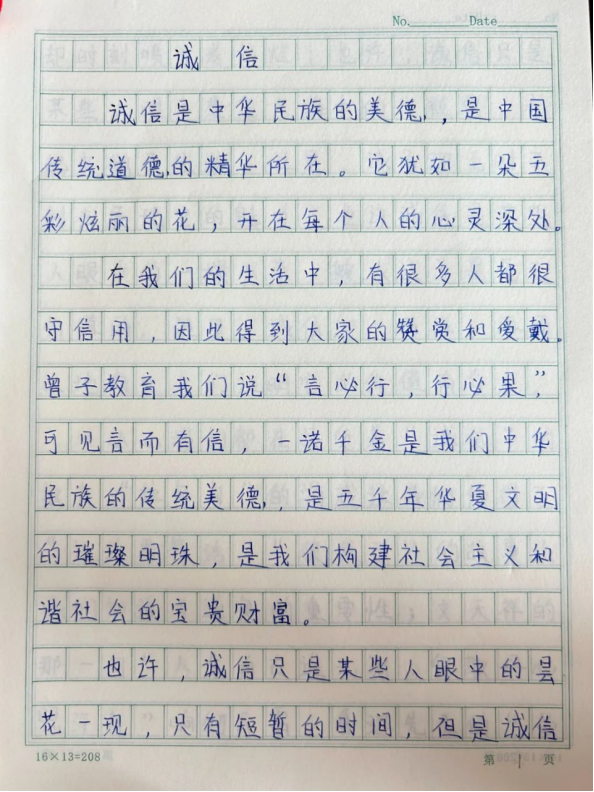 No. Date
诚信
诚信是中华民族的美德,是中国
传统道德的精华所在。它犹如一朵五
彩炫丽的花，开在每个人的心灵深处。
在我们的生活中，有很多人都很
守信用，因此得到大家的赞赏和爱戴。
曾子教育我们说“言必行，行必果”，
可见言而有信，一诺千金是我们中华
民族的传统美德，是五千年华夏文明
的璀璨明珠，是我们构建社会主义和
谐社会的宝贵财富。
也许，诚信只是某些人眼中的昙
花一现，只有短暂的时间，但是诚信
16×13=208 第 1 页